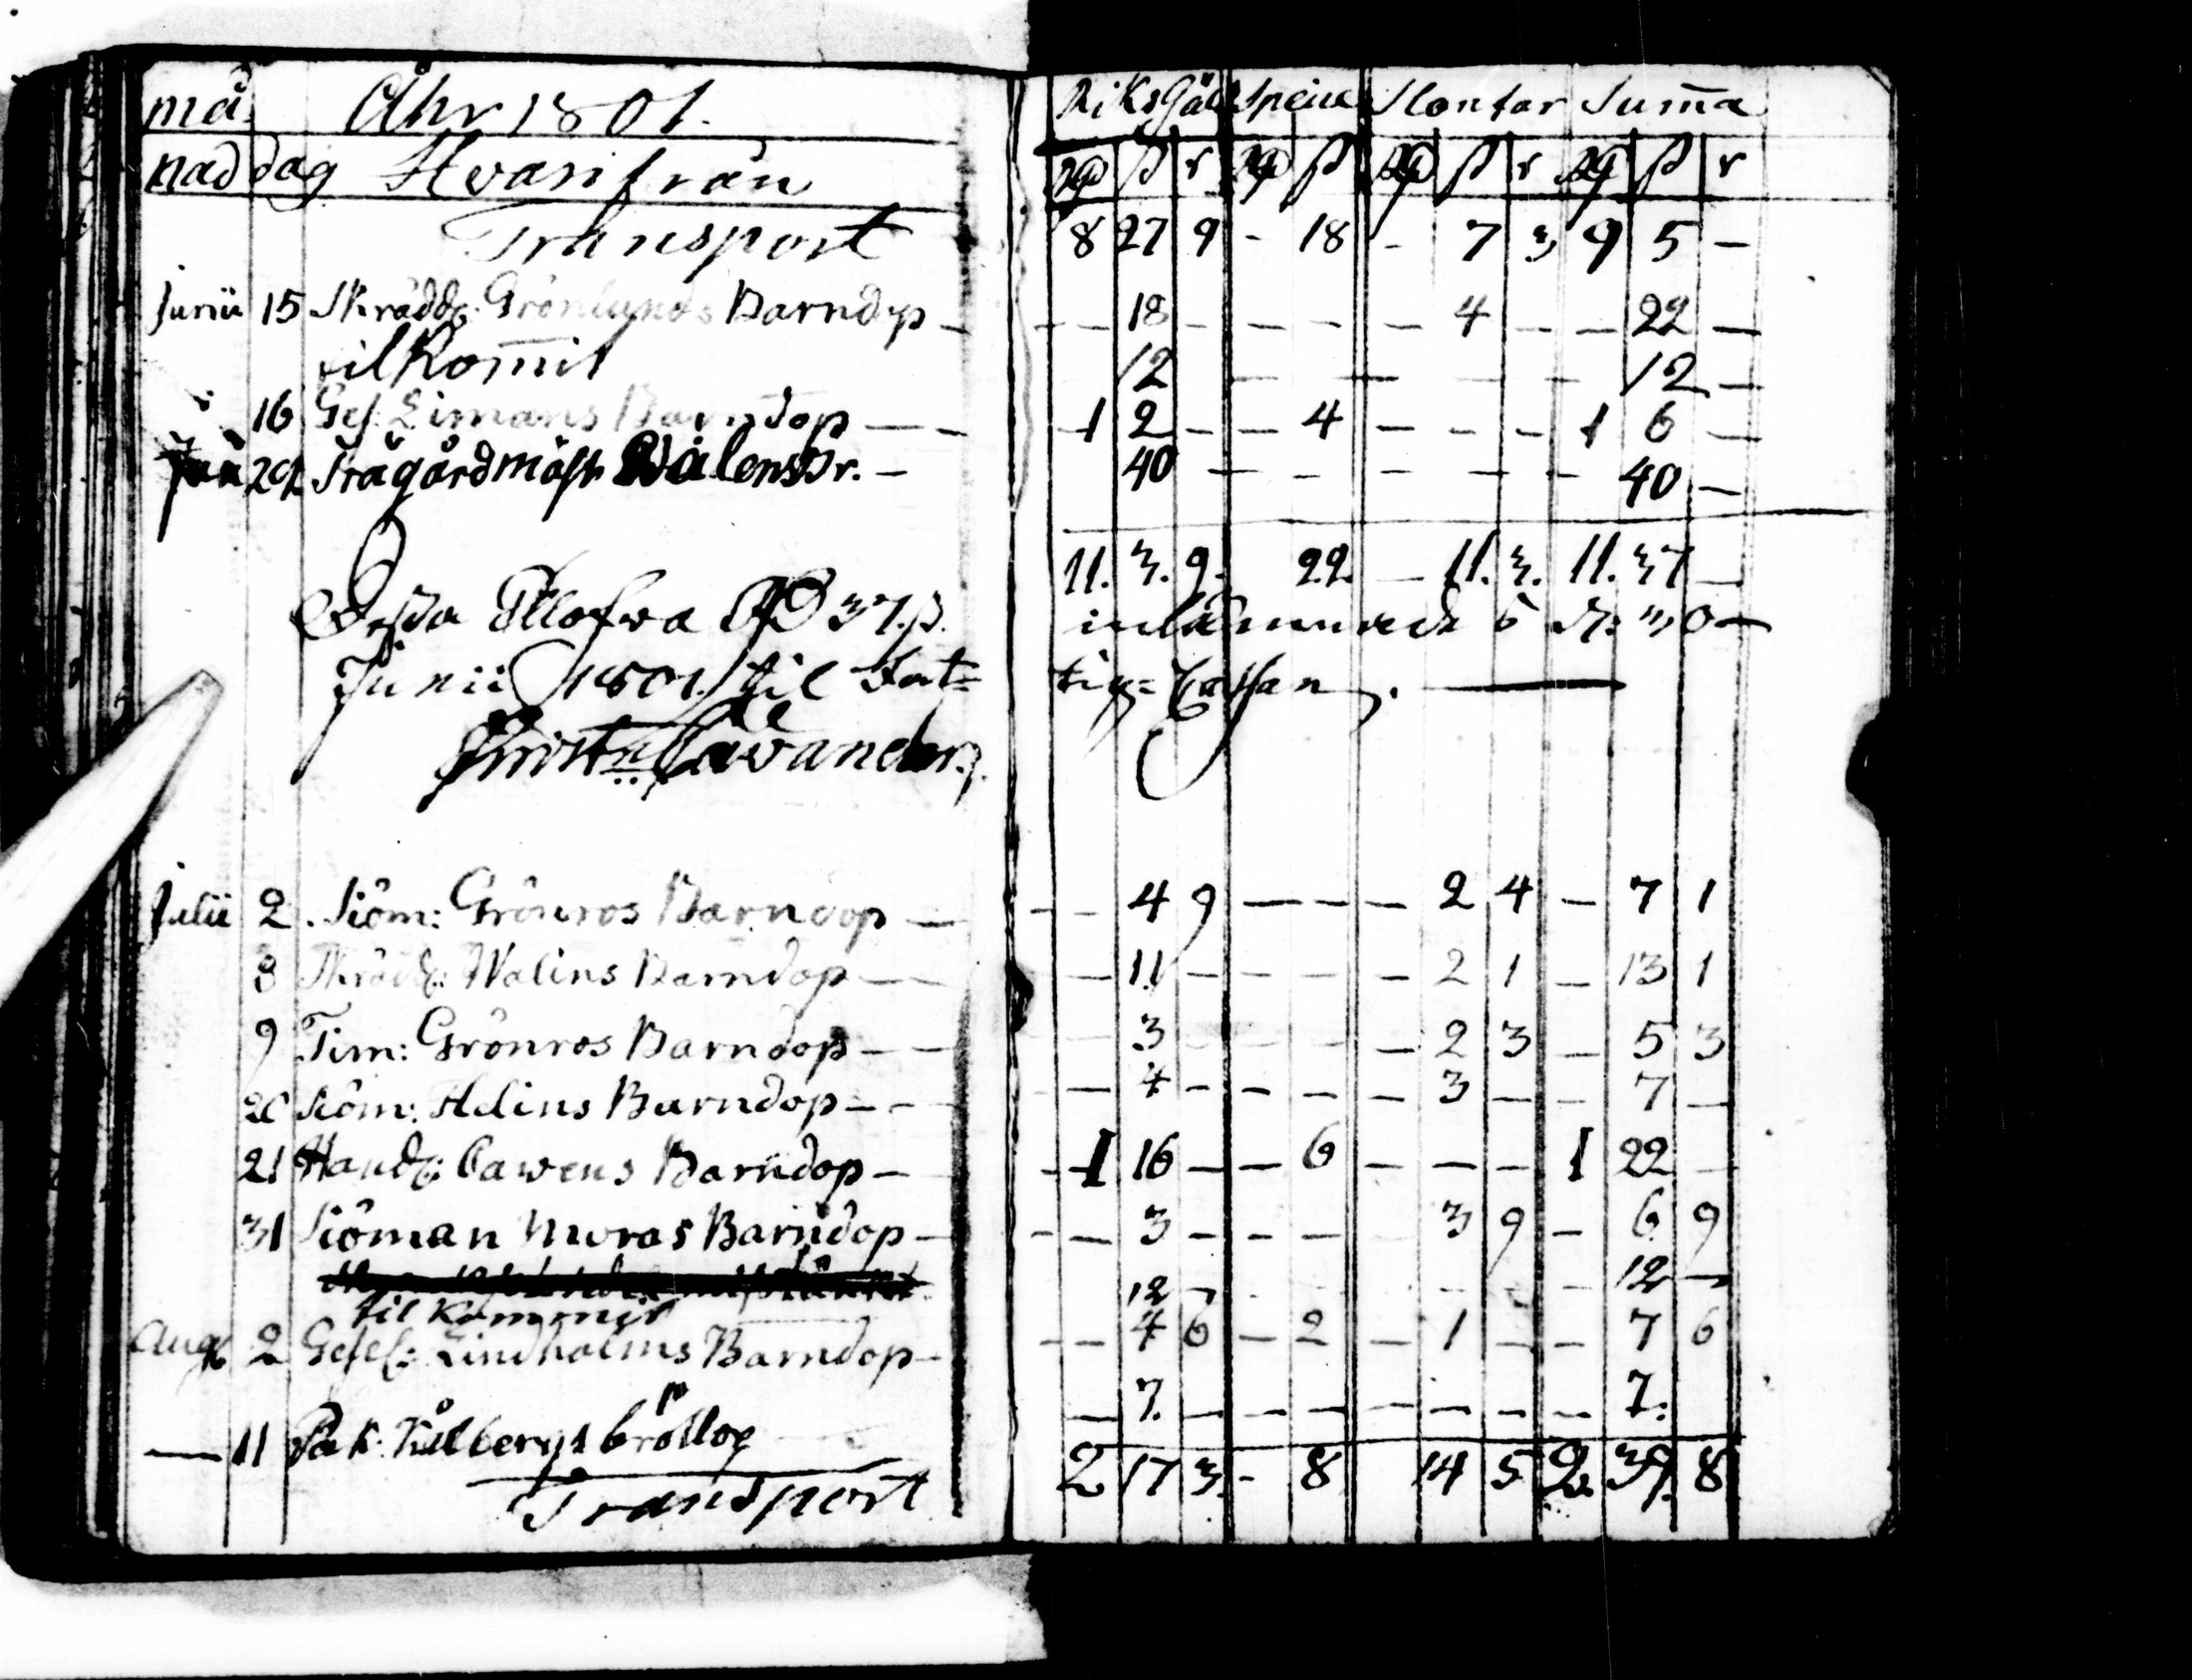 må Åhr 1801. Riks Gäld Speice Slantar Suma
nad dag Hvarifrån Rd ß r Rd ß Rd ß r Rd ß r
Transport 8 27 9 - 18 - 7 3 9 5 -
Junii 15 Skrädd: Grönlunds Barndop - - - 18 - - - - - 4 - - - 22 -
tilkomit 12 - - - - - 12 -
16 Ges: Eimans Barndop - - 1 2 - - 4 - - - 1 6 -
29 Trägårdmäst: Br. - 40 - - - - - - 40 -
11. 3. 9. 22 - 11. 3. 11. 37 -
Dessa Ellofwa Rd 37 ß.
Junii 1801 til Fat= tig= Cassan.
Julii 2 Siöm: Grönros Barndop - - - 4 9 - - - - 2 4 - 7 1
8 Skrädd: Walins Barndop - - - 11 - - - - 2 1 - 13 1
9 Tim: Grönros Barndop - - 3 - 2 3 - 5 3
20 Siöm: Helins Barndop - - - 4 - - - - 3 - - 7 -
21 Handl: Cawens Barndop - - 1 16 - - 6 - - - 1 22 -
31 Siöman Moras Barndop - - - 3 - - - 3 9 - 6 9
til kommit 12 - - - - 12 -
Augt 2 Gesel: Lindholms Barndop - - - 4 6 - 2 - 1 - - 7 6
- 11 Pak: Kålbergs bröllop - 7. - - - - - - - 7.
Transport 2 17 3. - 8 14 5 2. 39. 8